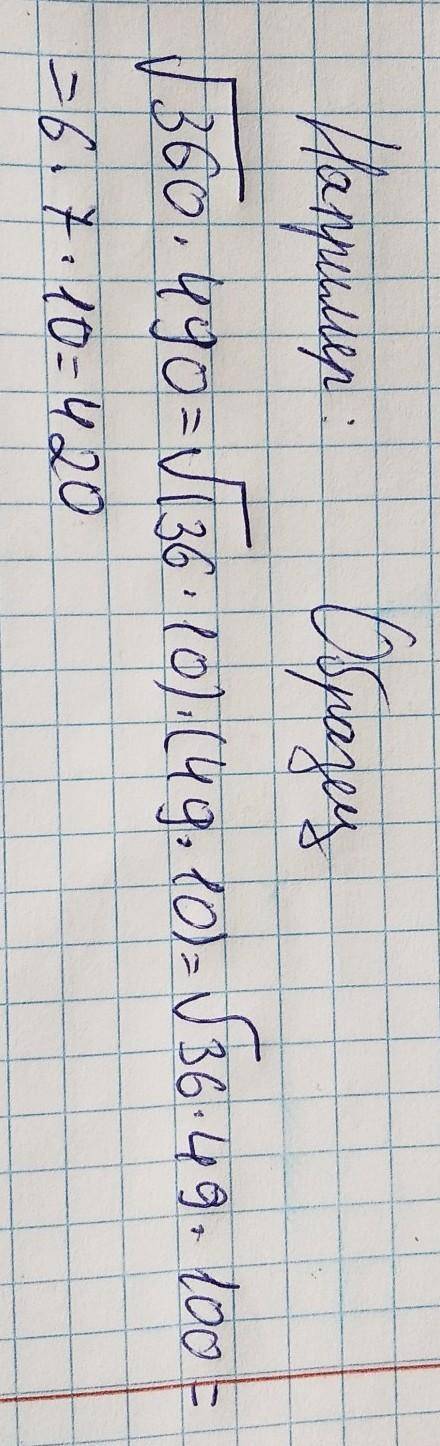 Например: Образец
√360·490=√(36·10)·(49·10)=√36·49·100=
=6·7·10=420